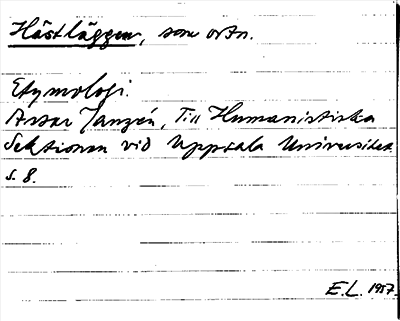 Hästläggen, som ortn.
Etymologi.
Assar Janzén, Till Humanistiska
Sektionen vid Uppsala Universitet
s. 8.
E.L. 1957.